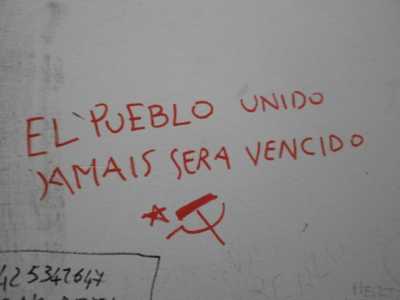 EL PUEBLO UNIDO
JAMAIS SERA VENCIDO
425342647